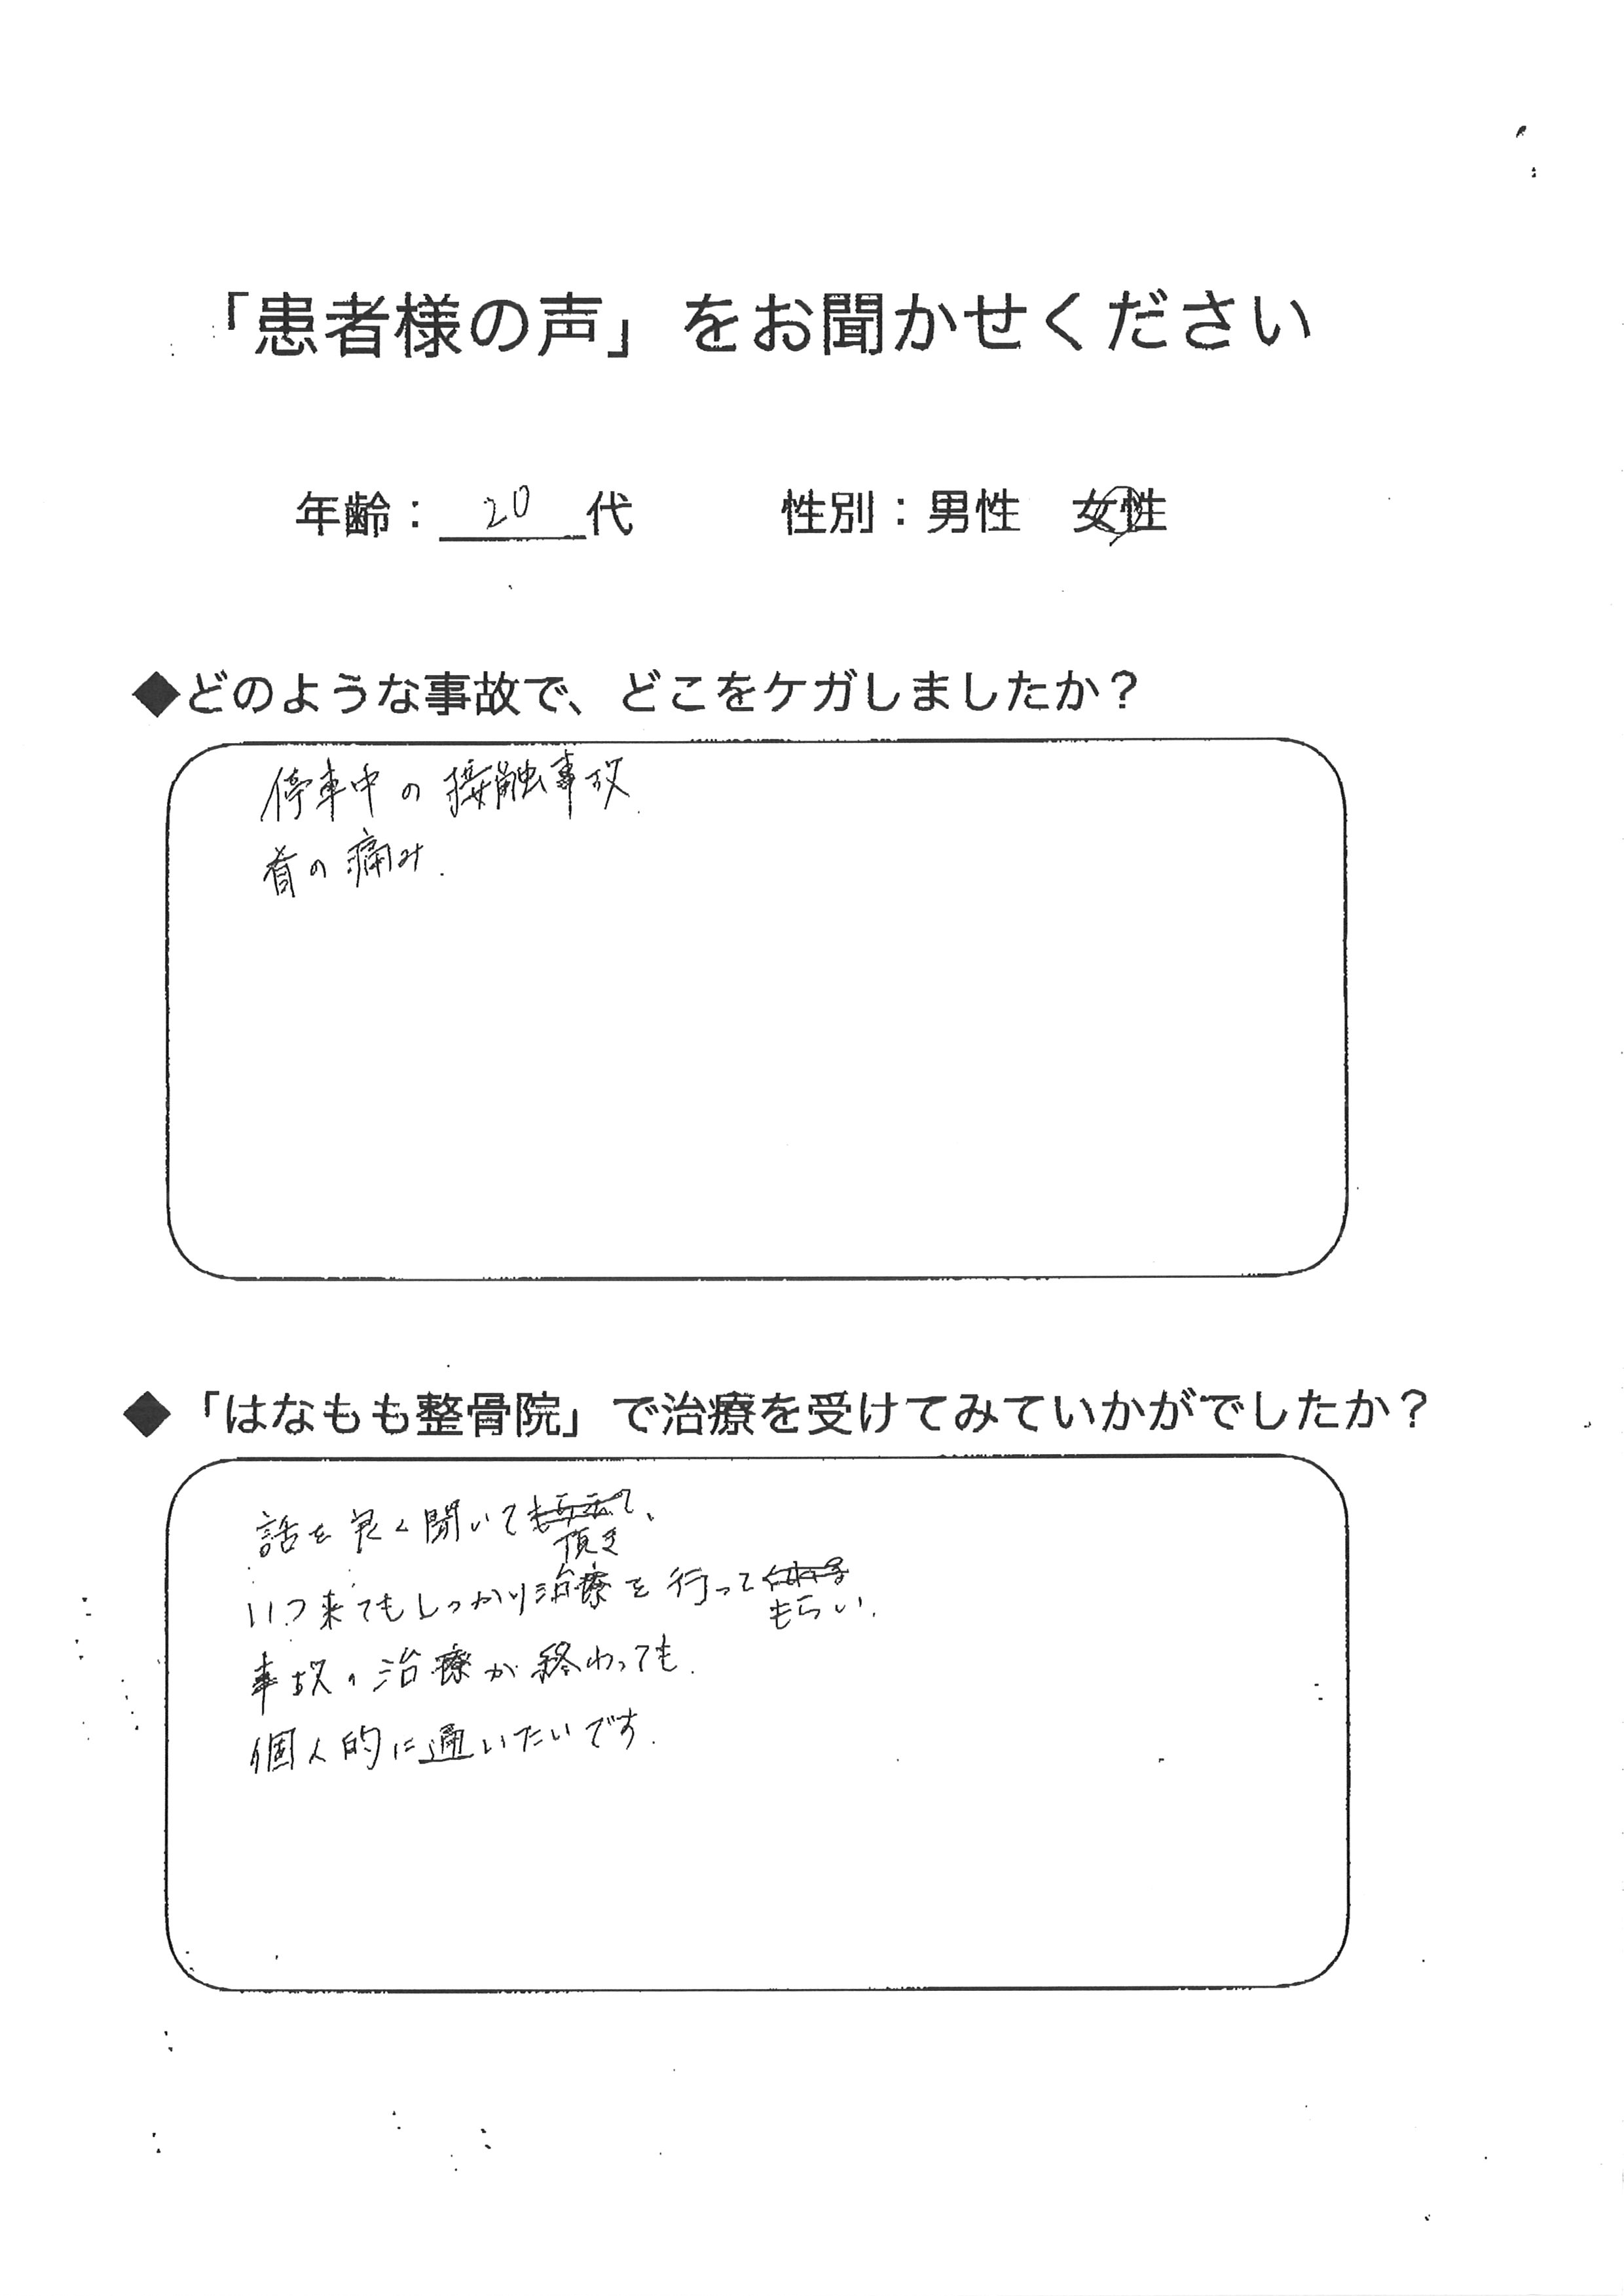 「患者様の声」をお聞かせください
年齢：20代 性別：男性 女性
◆どのような事故で、どこをケガしましたか？
停車中の接触事故.
首の痛み.
◆「はなもも整骨院」で治療を受けてみていかがでしたか？
話を良く聞いて頂き、
いつ来てもしっかり治療を行ってもらい.
事故の治療が終わっても.
個人的に通いたいです.